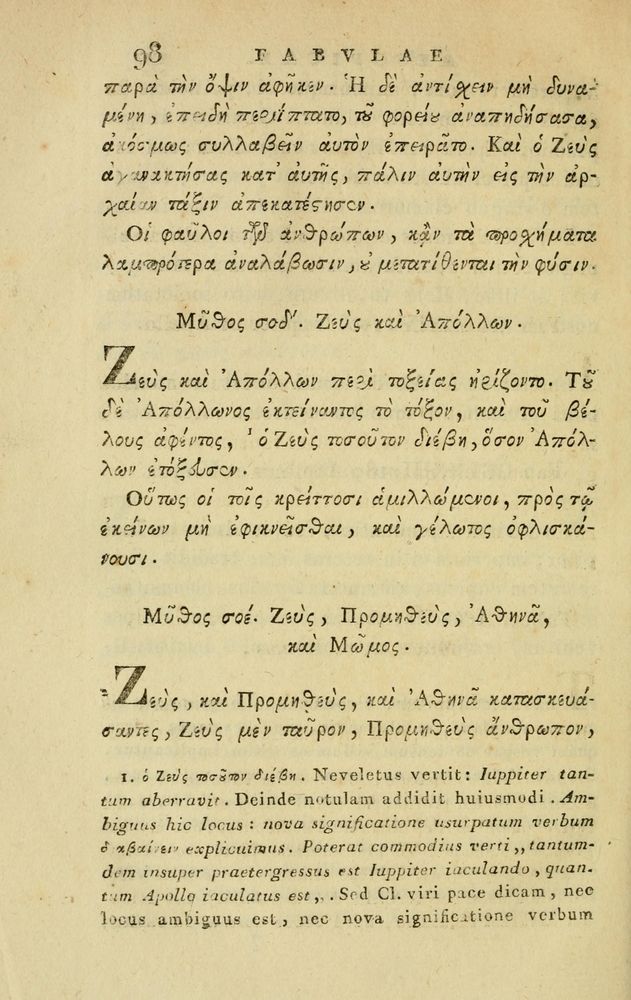 98 FABVLAE
παρὰ τὴν ὄψιν ἀφῆκεν. Ἡ δὲ ἀντίχειν μὴ δυνα-
μένη, ἐπειδὴ περιίπτατο, τοῦ φορείου ἀναπηδήσασα,
ἀκόσμως συλλαβεῖν αὐτὸν ἐπειρᾶτο. Καὶ ὁ Ζεὺς
ἀγανακτήσας κατ' αὐτῆς, πάλιν αὐτὴν εἰς τὴν ἀρ-
χαίαν τάξιν ἀπεκατέστησεν.
Οἱ φαῦλοι τῶν ἀνθρώπων, κἂν τὰ προσχήματα
λαμπρότερα ἀναλάβωσιν, οὐ μετατίθενται τὴν φύσιν.
Μῦθος σοδʹ. Ζεὺς καὶ Ἀπόλλων.
Ζεὺς καὶ Ἀπόλλων περὶ τοξείας ἠρίζοντο. Τοῦ
δὲ Ἀπόλλωνος ἐκτείναντος τὸ τόξον, καὶ τοῦ βέ-
λους ἀφέντος, ¹ ὁ Ζεὺς τοσοῦτον διέβη, ὅσον Ἀπόλ-
λων ἐτόξευσεν.
Οὕτως οἱ τοῖς κρείττοσι ἁμιλλώμενοι, πρὸς τῷ
ἐκείνων μὴ ἐφικνεῖσθαι, καὶ γέλωτος ὀφλισκά-
νουσι.
Μῦθος σοέ. Ζεὺς, Προμηθεὺς, Ἀθηνᾶ,
καὶ Μῶμος.
Ζεὺς, καὶ Προμηθεὺς, καὶ Ἀθηνᾶ κατασκευά-
σαντες, Ζεὺς μὲν ταῦρον, Προμηθεὺς ἄνθρωπον,
1. ὁ Ζεὺς τοσοῦτον διέβη. Neveletus vertit: Iuppiter tan-
tum aberravit. Deinde notulam addidit huiusmodi. Am-
biguus hic locus: nova significatione usurpatum verbum
explicuimus. Poterat commodius verti „tantum-
dem insuper praetergressus est Iuppiter iaculando, quan-
tum Apollo iaculatus est„. Sed Cl. viri pace dicam, nec
locus ambiguus est, nec nova significatione verbum